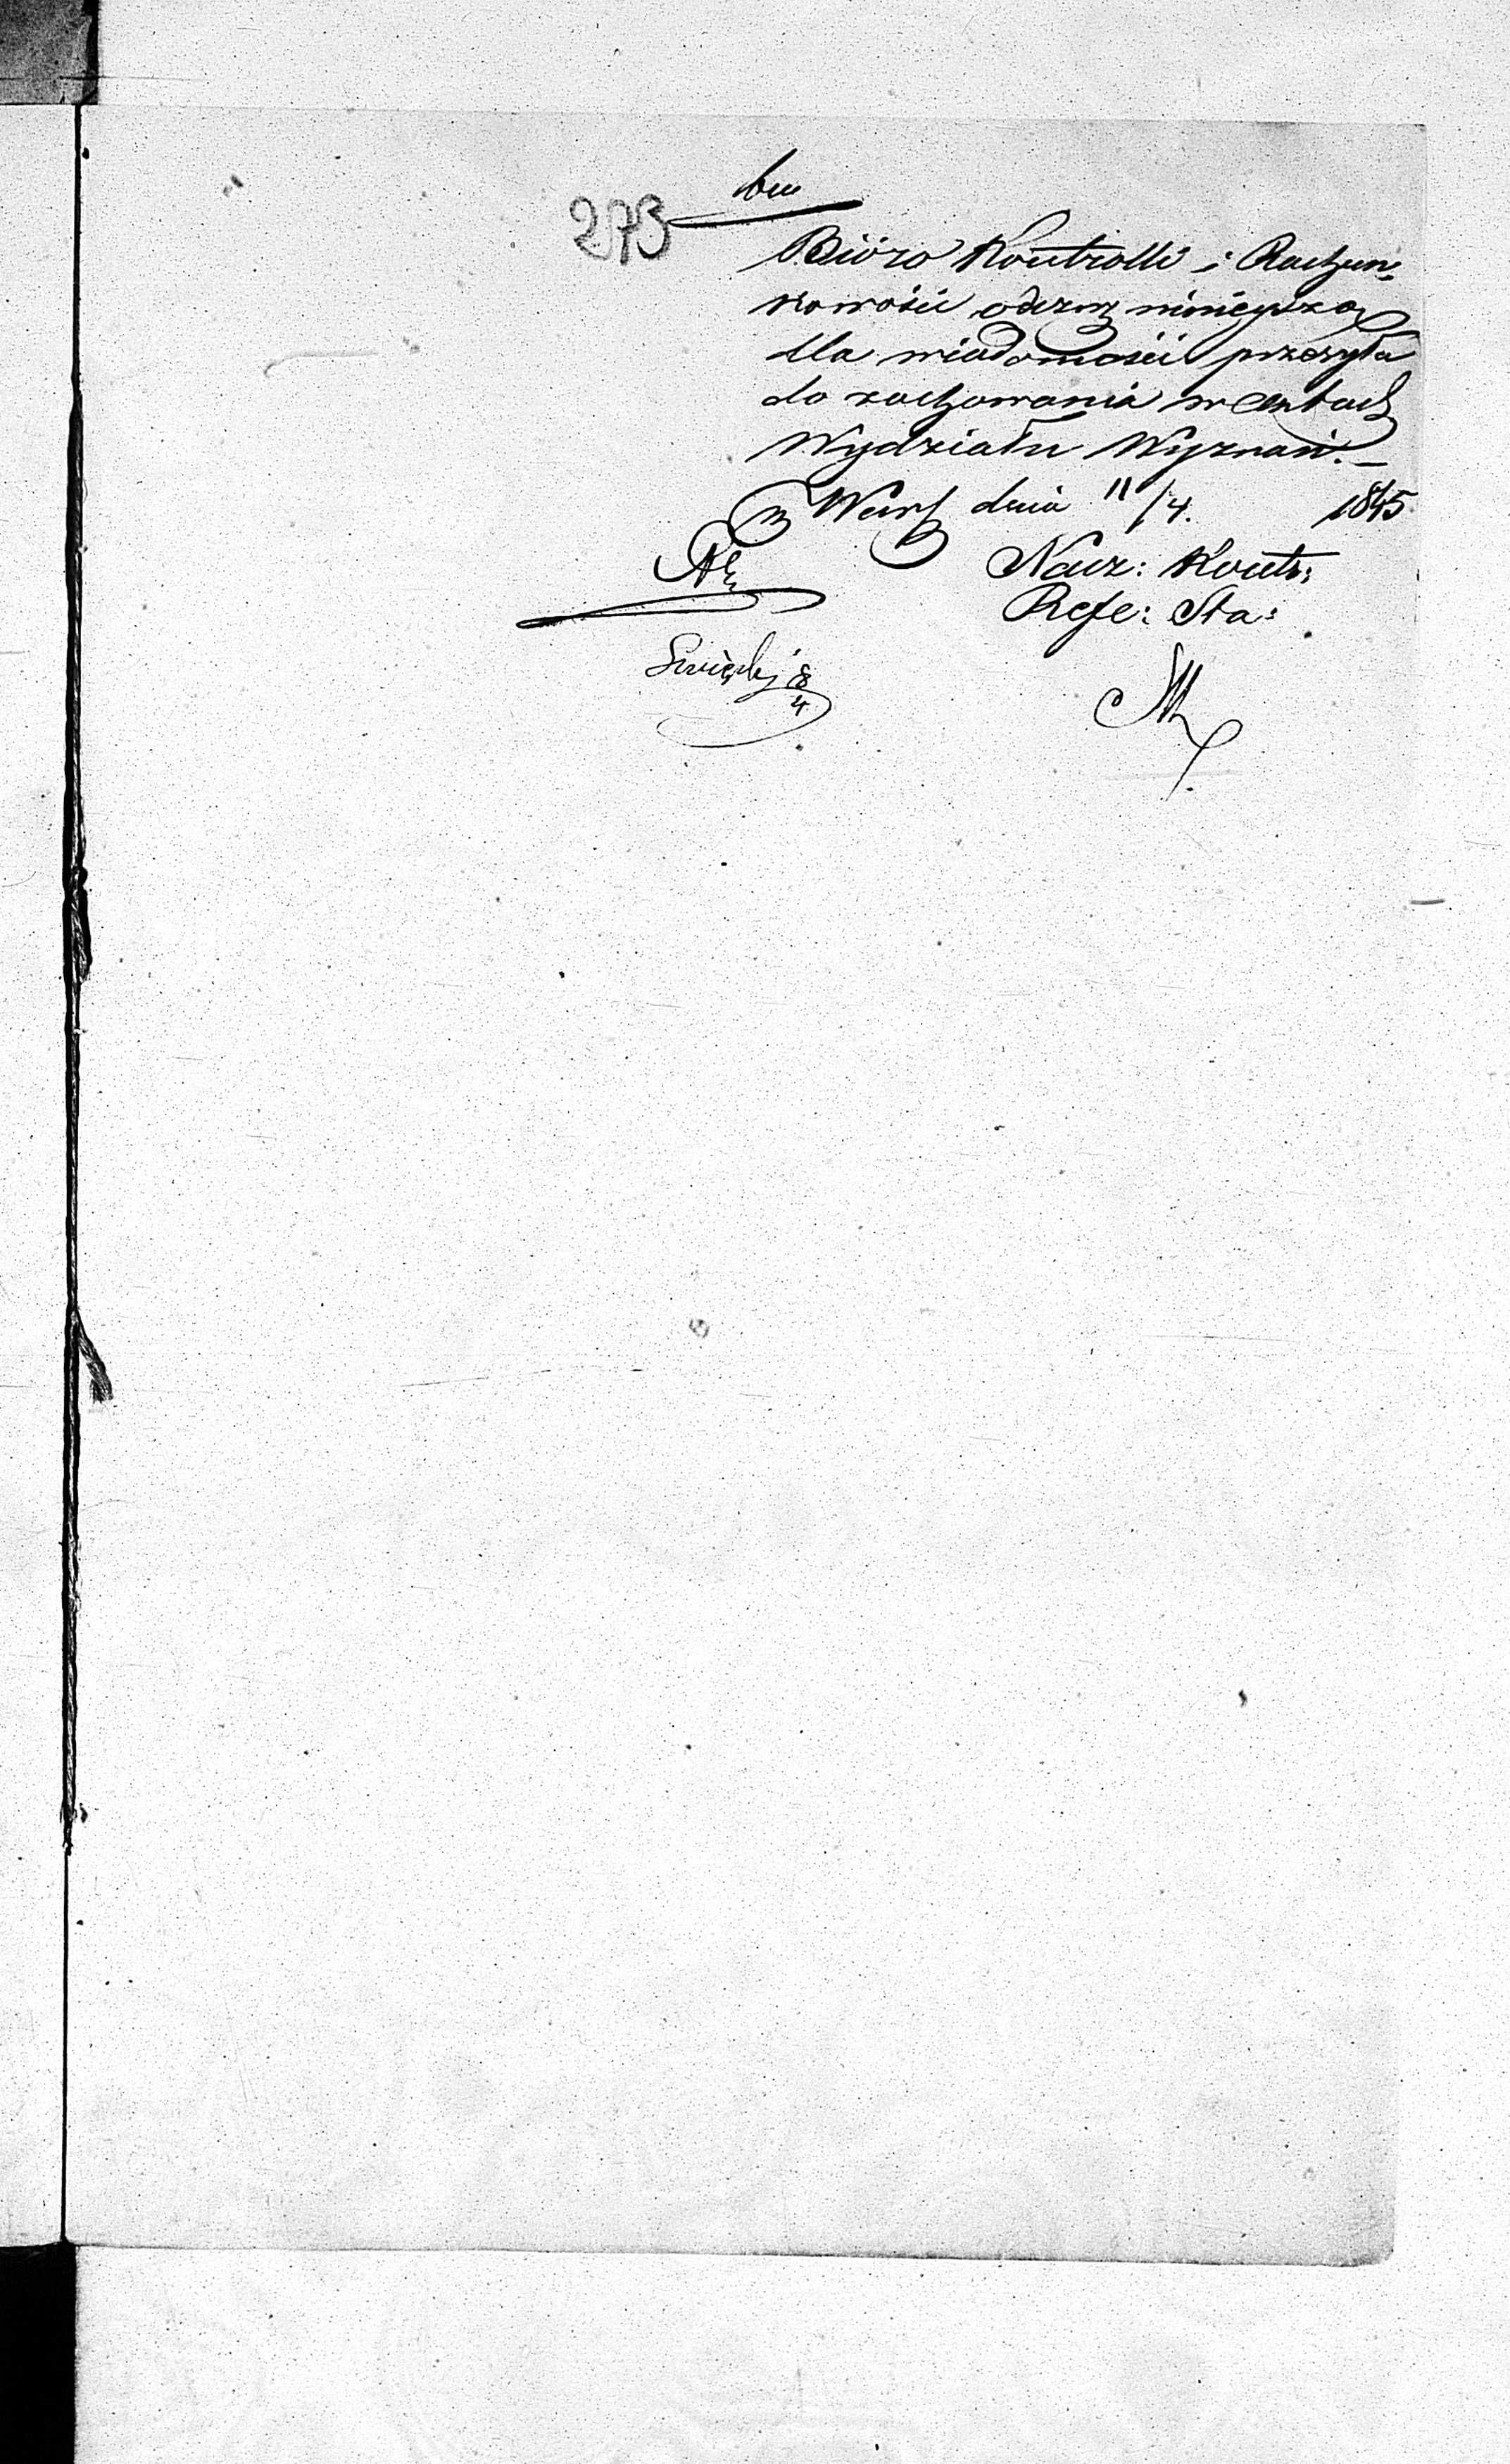 273
Bióro Kontrolli i Rachun=
kowości odezwę niniejszą
dla wiadomości przesyła
do zachowania w Aktach
Wydziału Wyznań. —
w Wars dnia 11/4. 1845
Nacz: Kontr:
Refe: Sta:
8
4